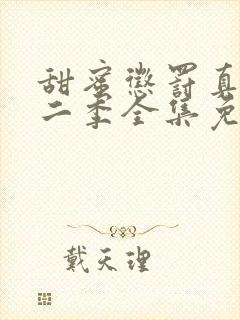 甜蜜惩罚真
二季全集免
戴天理